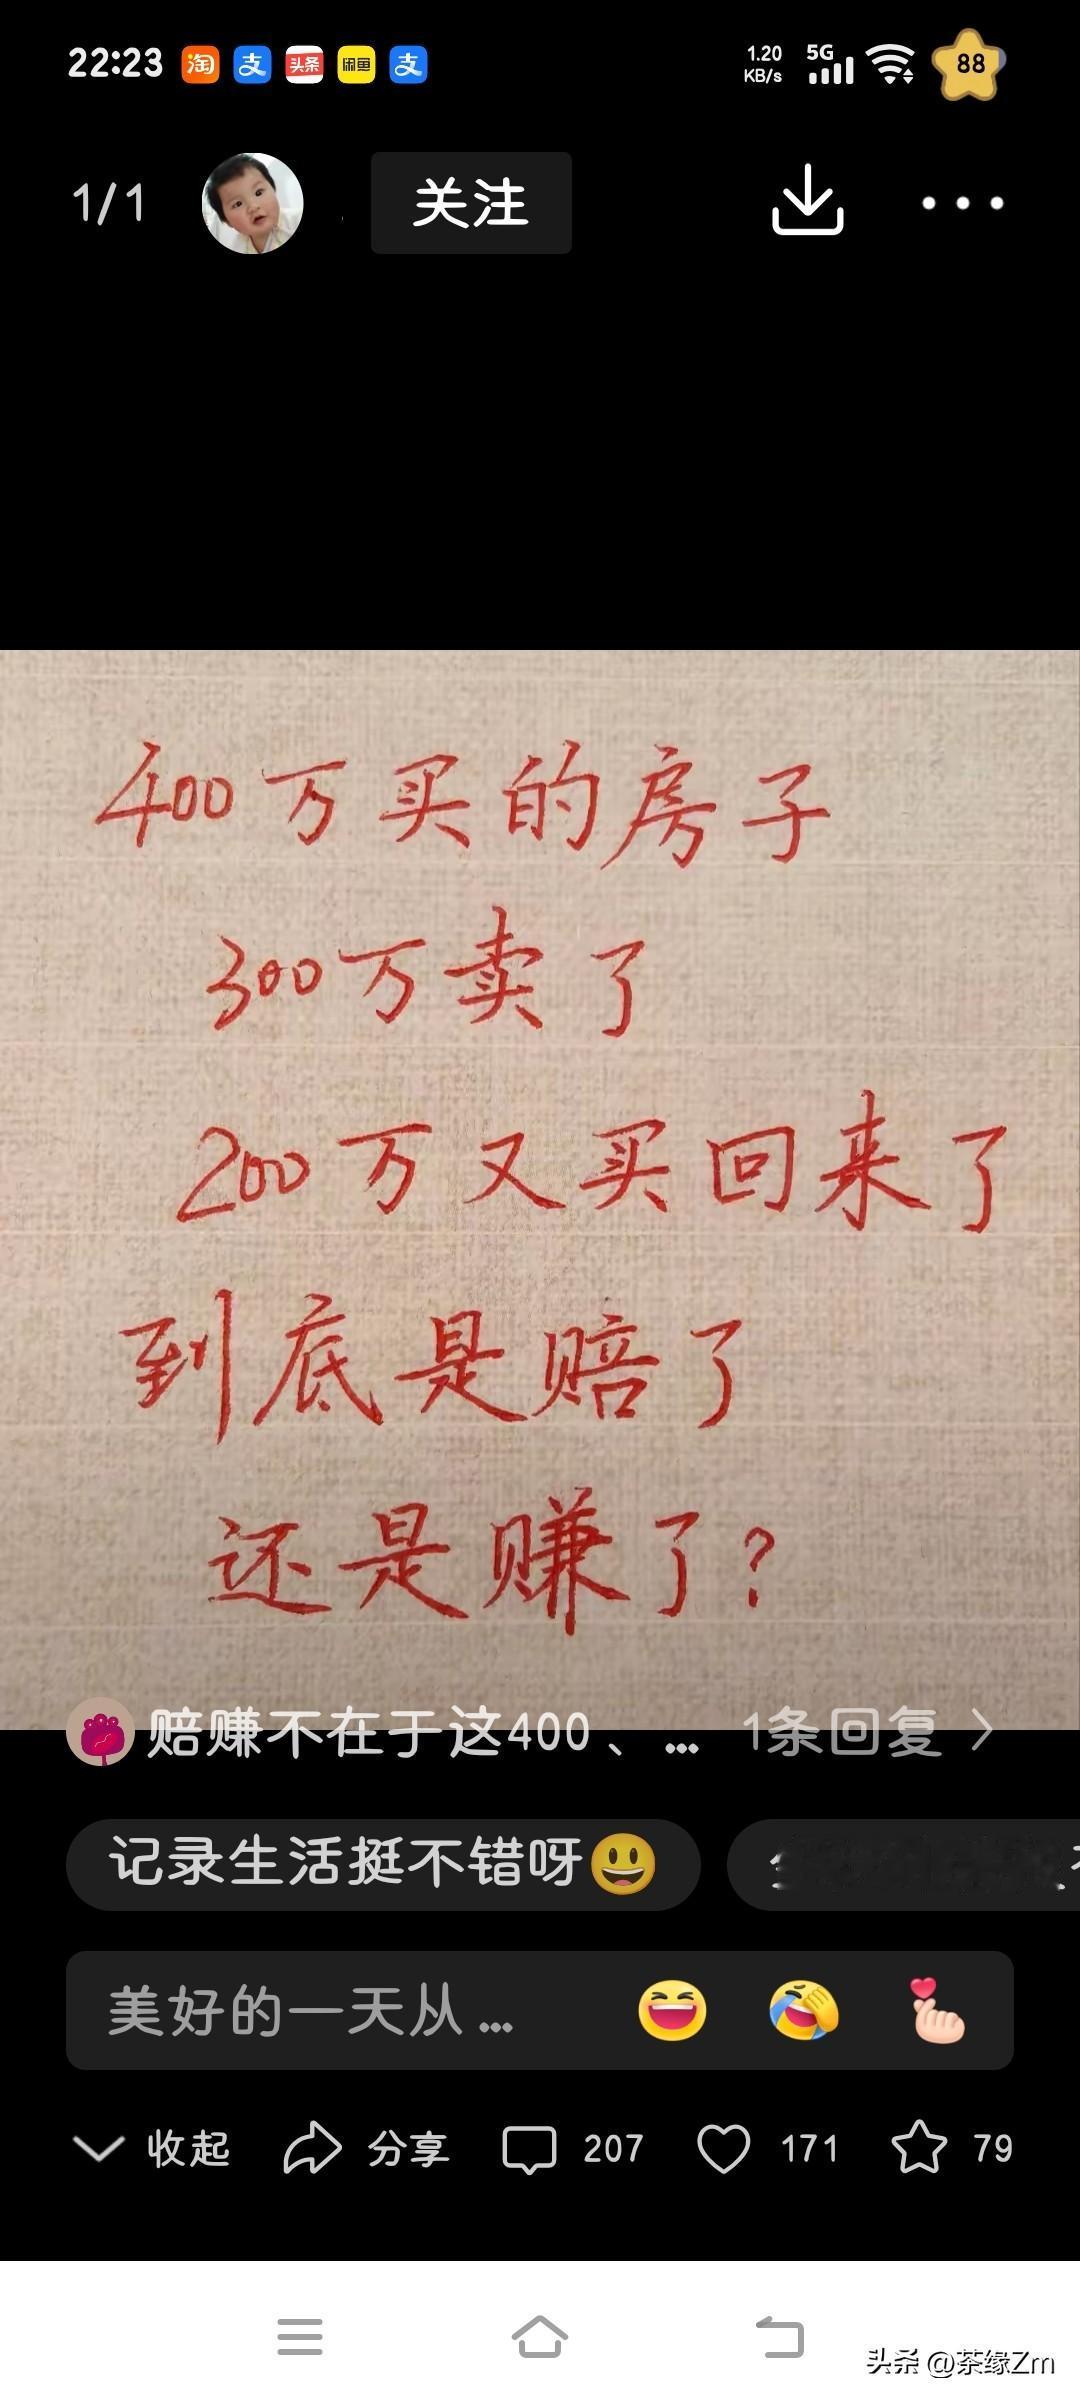 22:23 淘 支 头条 闲鱼 支 1.20 KB/s 5G 88
1/1 关注
400万买的房子
300万卖了
200万又买回来了
到底是赔了
还是赚了?
赔赚不在于这400、... 1条回复
记录生活挺不错呀
美好的一天从...
收起 分享 207 171 79
头条 @茶缘Zm